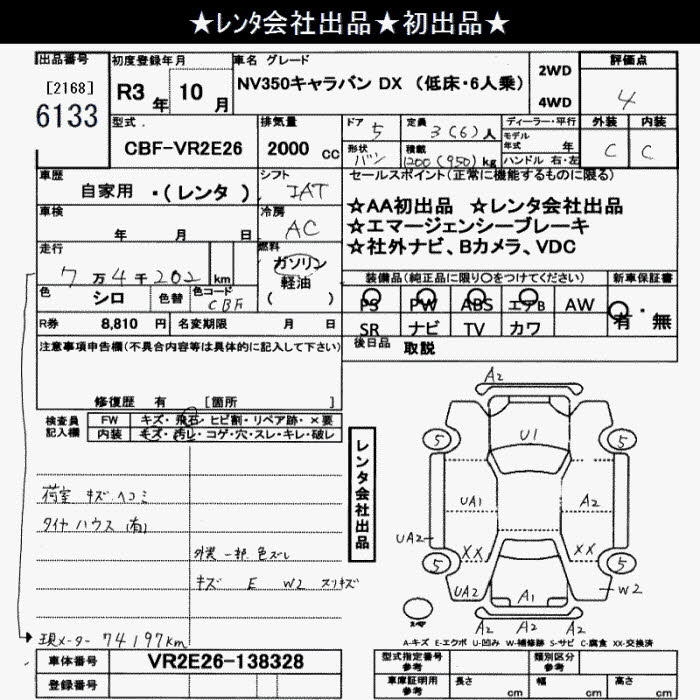 ★レンタ会社出品★初出品★
出品番号
[2168]
6133
初度登録年月
R3 年 10 月
車名 グレード
NV350キャラバン DX (低床・6人乗)
2WD
4WD
評価点
4
型式
CBF-VR2E26
排気量
2000 cc
ドア 5
形状 バン
定員 3(6)人
積載 1200(950)kg
ディーラー・平行
モデル年式 年
ハンドル 右・左
外装 C
内装 C
車歴
自家用 ・(レンタ )
シフト
IAT
セールスポイント(正常に機能するものに限る)
☆AA初出品 ☆レンタ会社出品
☆エマージェンシーブレーキ
☆社外ナビ、Bカメラ、VDC
車検
年 月 日
冷房
AC
走行
7万4千202 km
燃料
ガソリン
軽油
( )
色
シロ
色替
色コード
CBF
装備品(純正品に限り○をつけてください)
PS PW ABS エアB AW
SR ナビ TV カワ
新車保証書
有・無
R券 8,810 円
名変期限 月 日
後日品 取説
注意事項申告欄(不具合内容等は具体的に記入して下さい)
修復歴 有 [箇所 ]
検査員記入欄
FW キズ・飛石・ヒビ割・リペア跡・×要
内装 キズ・汚レ・コゲ・穴・スレ・キレ・破レ
荷室 キズ ヘコミ
タイヤハウス (有)
外装 一部 色ズレ
キズ E W2 スリキズ
現メーター 74197km
レンタ会社出品
A2
5 U1 5
UA1 A2
UA2
XX XX
5 5
UA2 A1 W2
A2 A2 A2
A-キズ E-エクボ U-凹み W-補修跡 S-サビ C-腐食 XX-交換済
車体番号 VR2E26-138328
登録番号
型式指定番号 参考
類別区分 参考
車庫証明用 参考
長さ cm
幅 cm
高さ cm